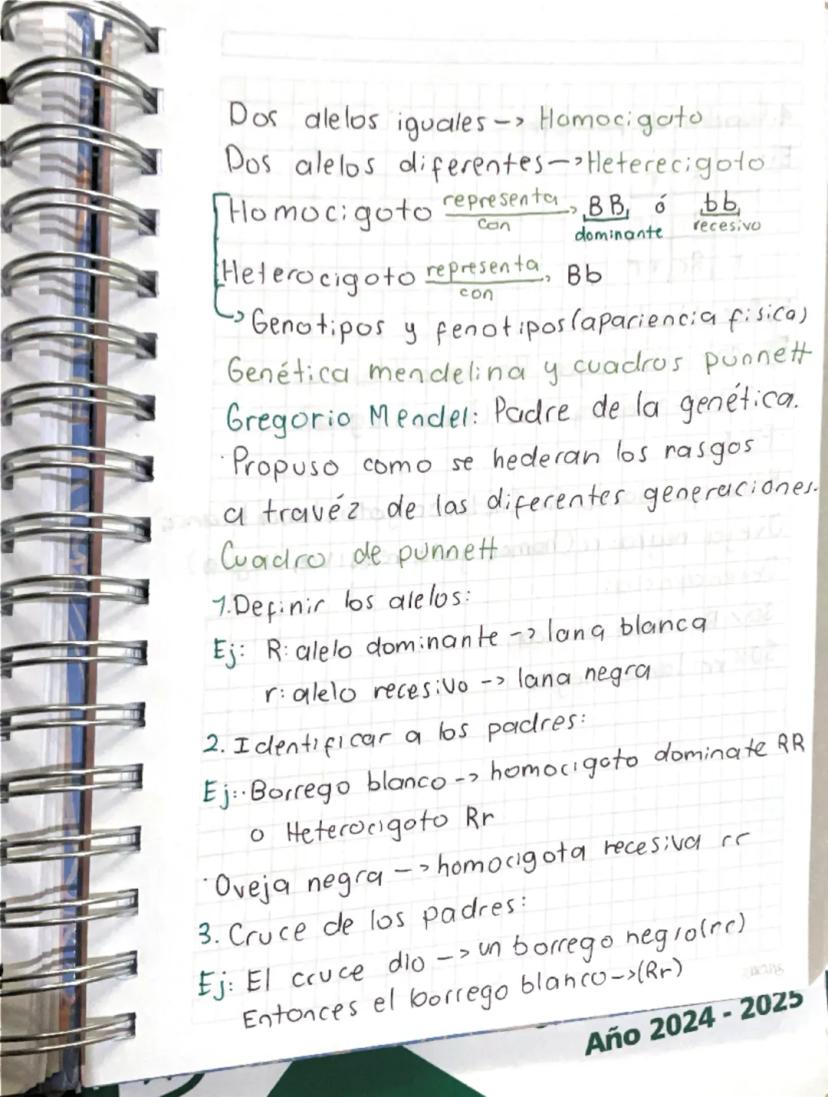 Dos alelos iguales -> Homocigoto
Dos alelos diferentes -> Heterecigoto
Homocigoto representa con -> BB ó bb
dominante recesivo
Heterocigoto representa con -> Bb
-> Genotipos y fenotipos (apariencia física)
Genética mendelina y cuadros punnett
Gregorio Mendel: Padre de la genética.
·Propuso como se hederan los rasgos
a travéz de las diferentes generaciones.
Cuadro de punnett
1.Definir los alelos:
Ej: R: alelo dominante -> lana blanca
r: alelo recesivo -> lana negra
2. Identificar a los padres:
Ej:·Borrego blanco -> homocigoto dominate RR
o Heterocigoto Rr
·Oveja negra -> homocigota recesiva rr
3. Cruce de los padres:
Ej: El cruce dio -> un borrego negro(rr)
Entonces el borrego blanco->(Rr)
Año 2024 - 2025